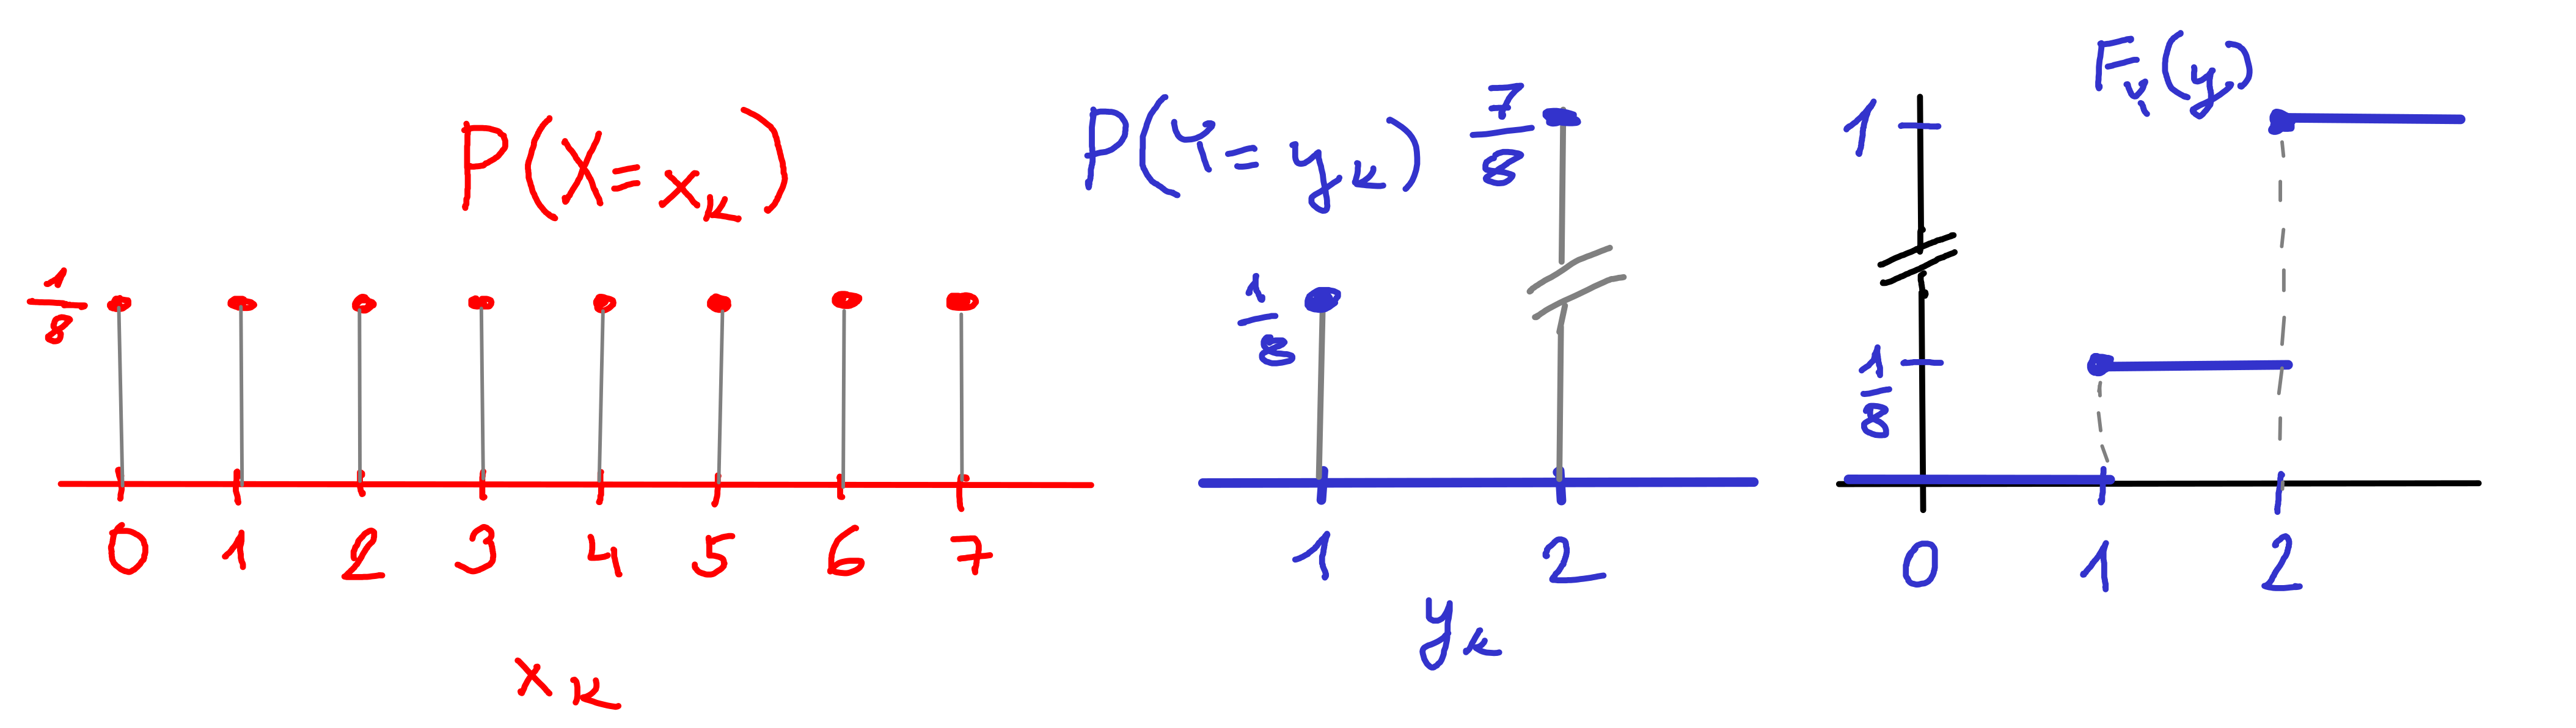 P(X = x_k)
1/8
0 1 2 3 4 5 6 7
x_k
P(Y = y_k)
7/8
1/8
1 2
y_k
F_Y(y)
1
1/8
0 1 2